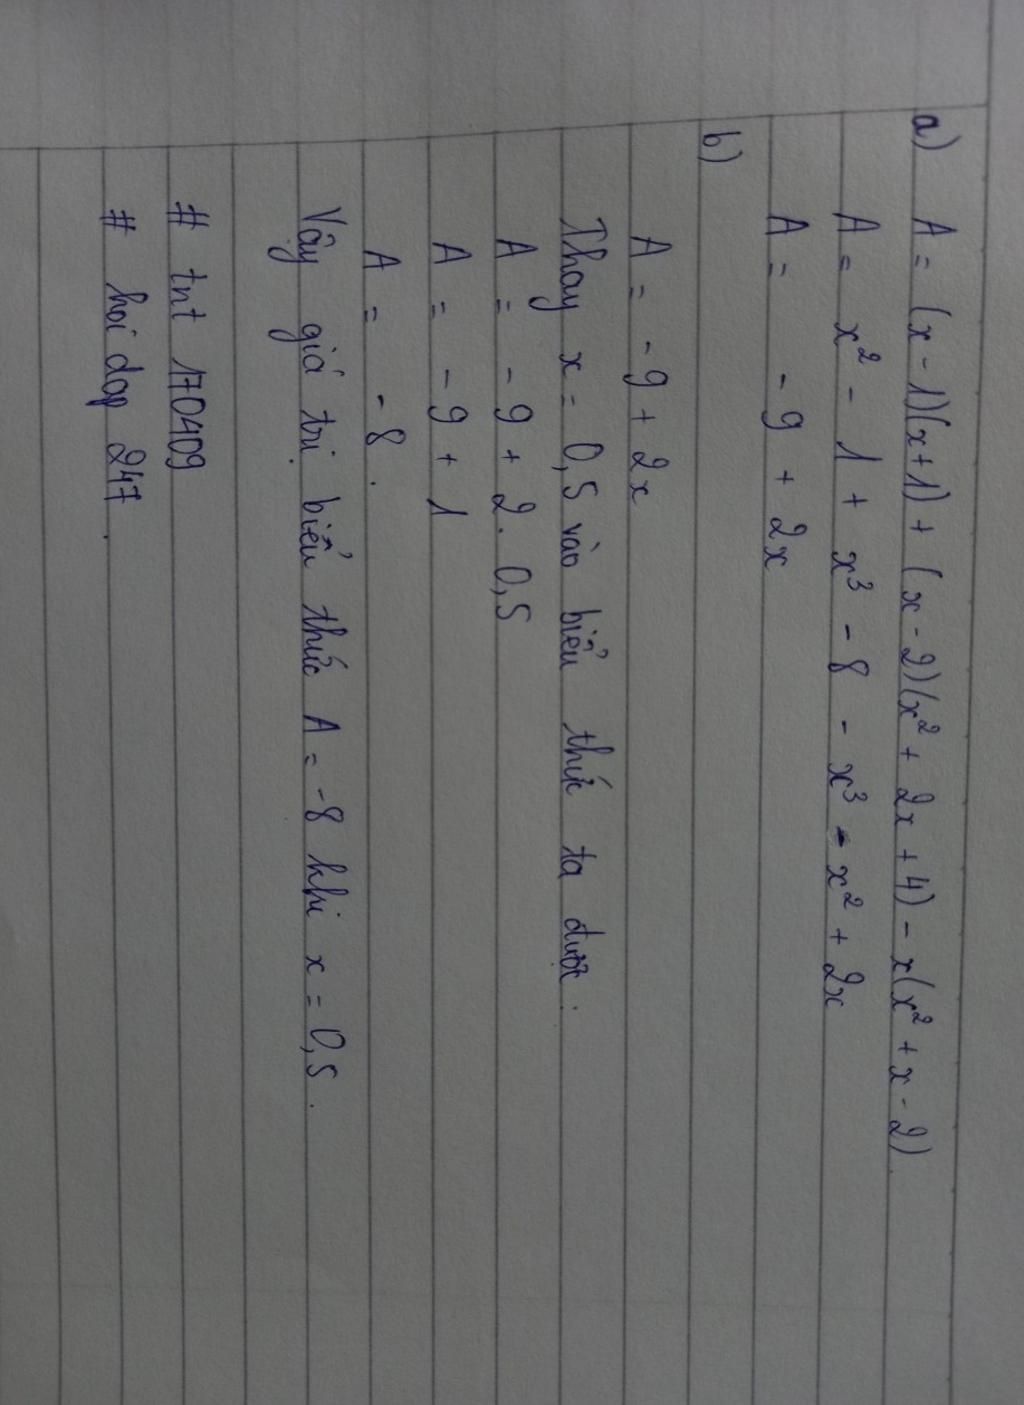 a) A = (x - 1)(x + 1) + (x - 2)(x² + 2x + 4) - x(x² + x - 2)
A = x² - 1 + x³ - 8 - x³ - x² + 2x
A = - 9 + 2x
b)
A = - 9 + 2x
Thay x = 0,5 vào biểu thức ta được :
A = - 9 + 2. 0,5
A = - 9 + 1
A = - 8.
Vậy giá trị biểu thức A = -8 khi x = 0,5.
# tnt 170409
# hoi dap 247.